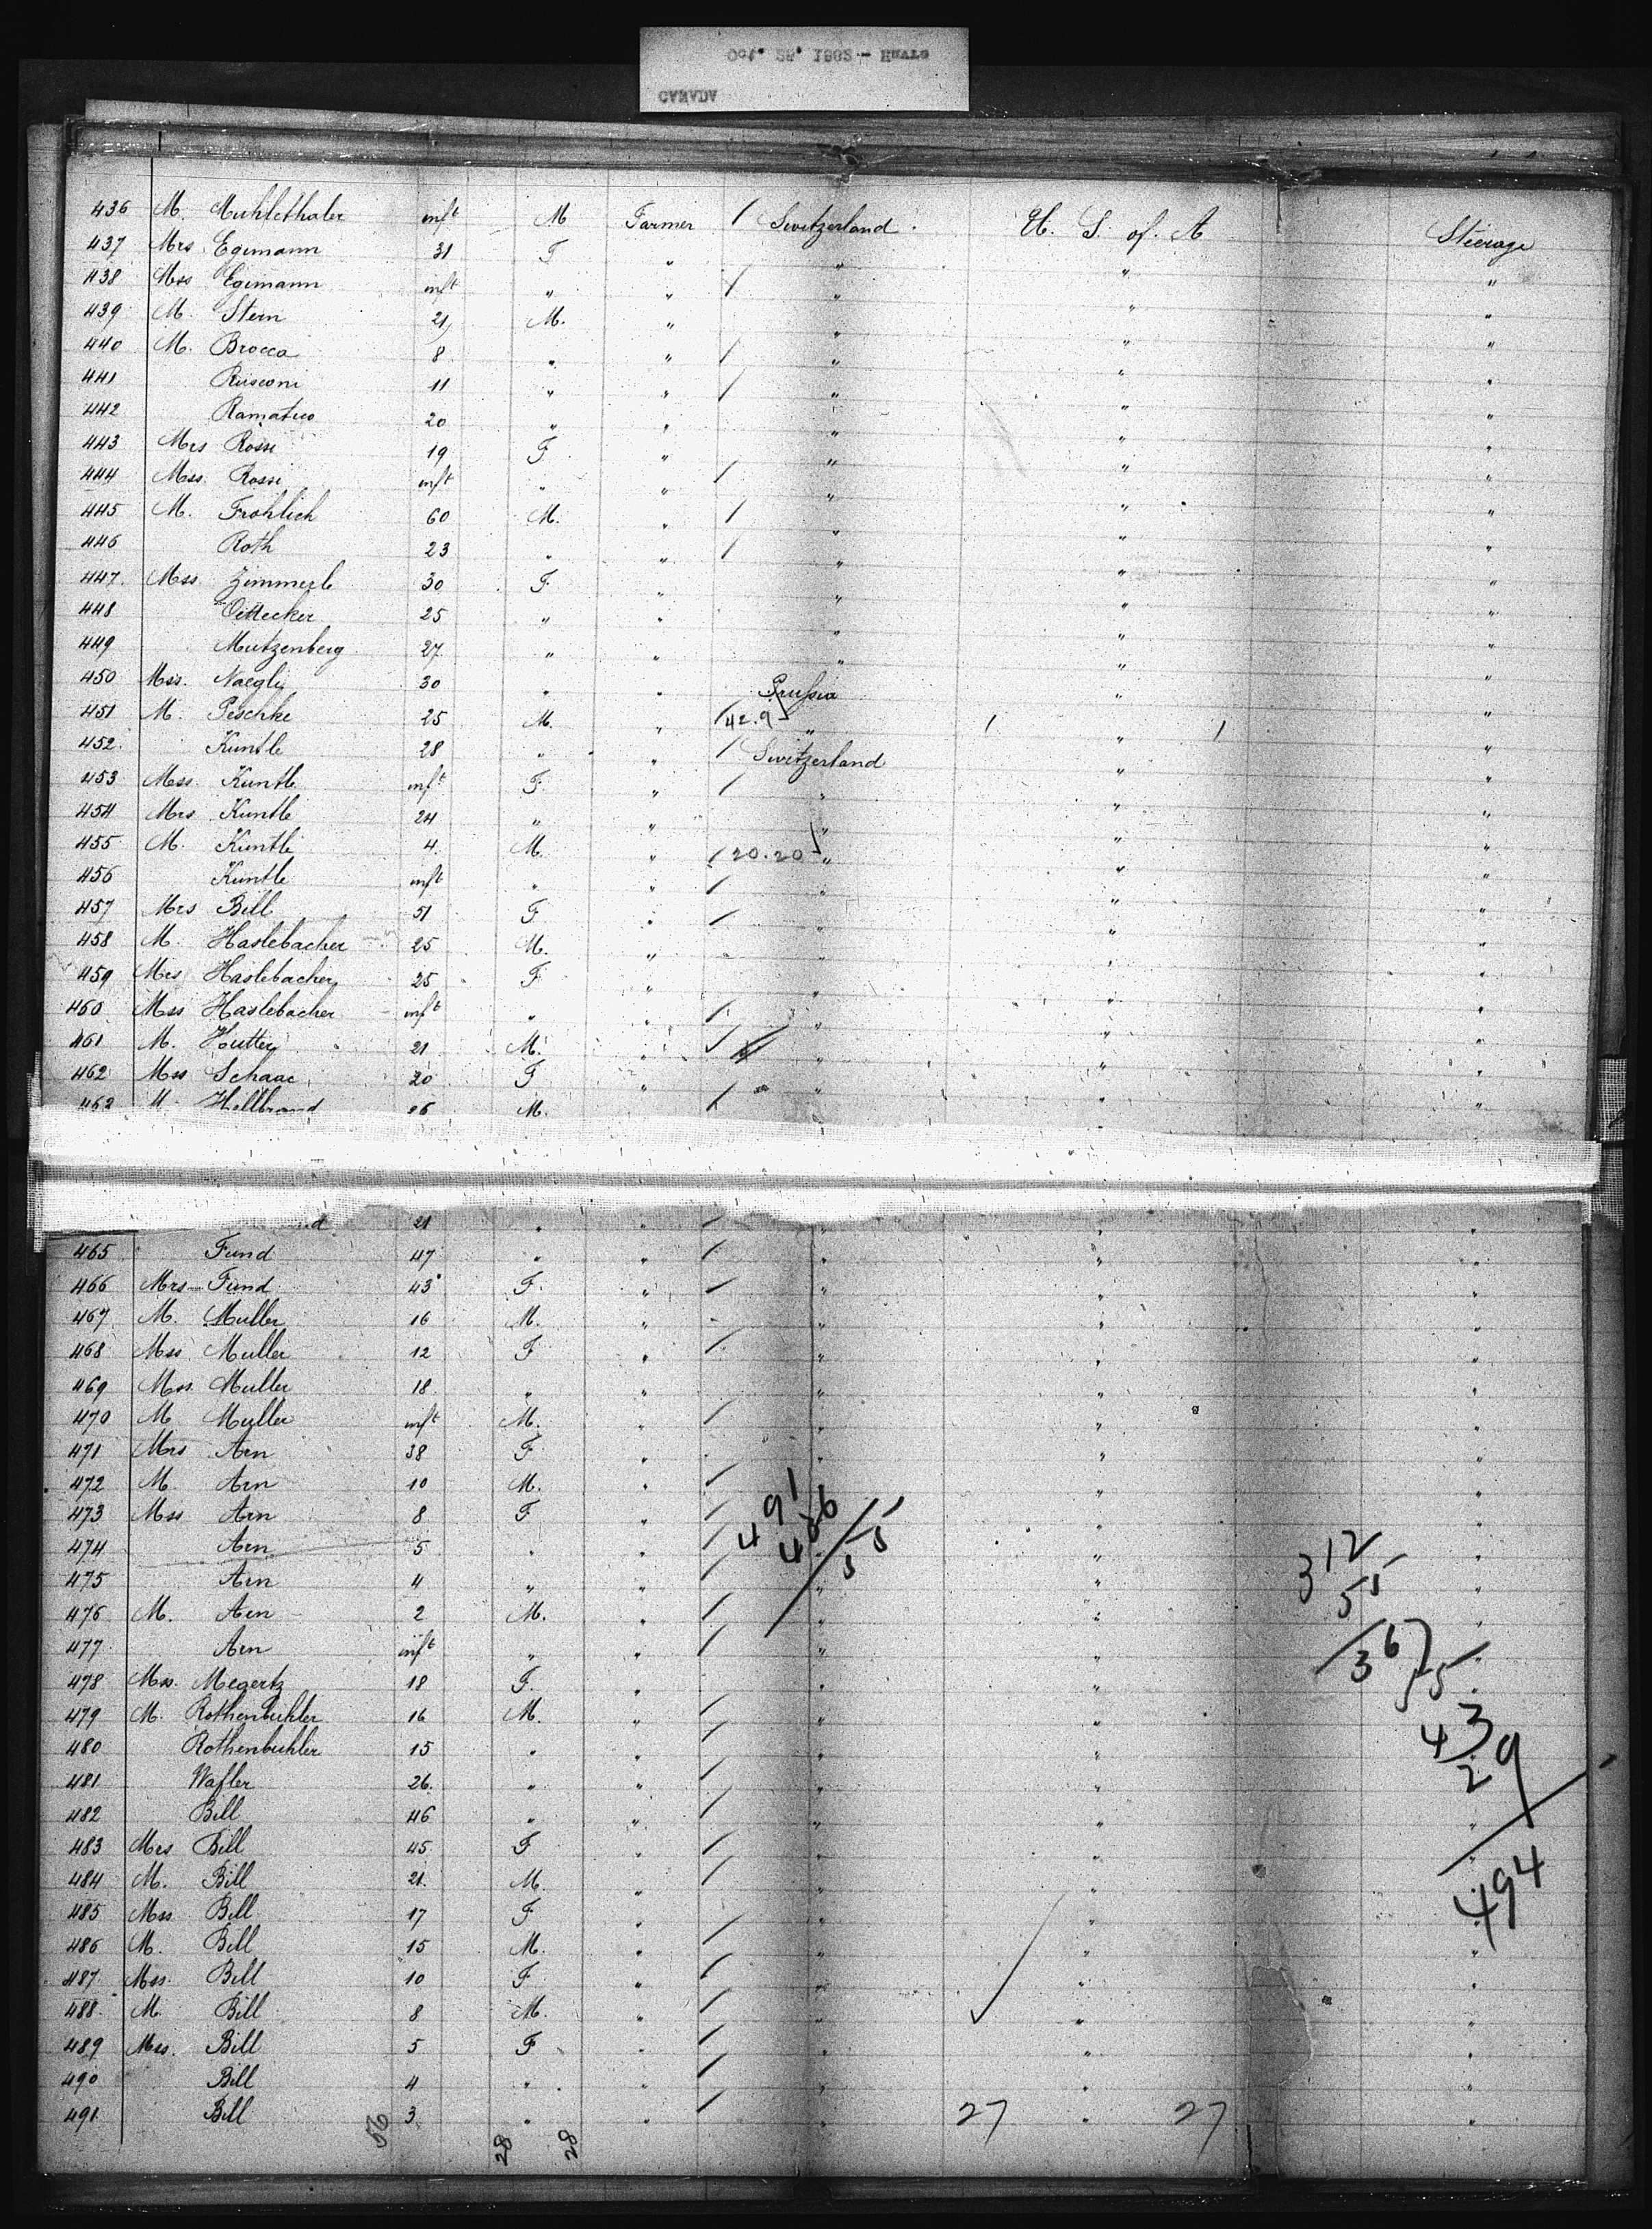 Oct. 25. 1882 - Havre
CANADA
436 M. Muhlethaler inft M Farmer / Switzerland. U. S. of. A Steerage
437 Mrs Egimann 31 F " " " "
438 Mss Egimann inft " " / " " "
439 M. Stern 21 M. " " " "
440 M. Brocca 8 " " / " " "
441 Rusconi 11 " " / " " "
442 Ramatico 20 " " " " "
443 Mrs Rossi 19 F " " " "
444 Mss. Rossi inft " " / " " "
445 M. Frohlich 60 M. " / " " "
446 Roth 23 " " / " " "
447. Mss Zimmerli 30 F. " " " "
448 Oettecker 25 " " " " "
449 Mutzenberg 27 " " " " "
450 Mss. Naegli 30 " " Prussia " "
451 M. Peschke 25 M. " / 42.9 " / " / "
452. Kuntle 28 " " / Switzerland " "
453 Mss. Kuntle inft F. " / " " "
454 Mrs Kuntle 24 " " " " "
455 M. Kuntle 4. M. " / 20.20 " " "
456 Kuntle inft " " / " " "
457 Mrs Bill 51 F " / " " "
458 M. Haslebacher 25 M. " " " "
459 Mrs Haslebacher 25 F " " " "
460 Mss Haslebacher inft " " / " " "
461 M. Hutter 21 M. " / " " "
462 Mss Schaac 20 F " / " " "
463 M. Hellbrand 26 M.
21 " " / " " "
465 Fund 47 " " / " " "
466 Mrs Fund 43 F. " / " " "
467 M. Muller 16 M. " " " "
468 Mss. Muller 12 F " / " " "
469 Mss. Muller 18 " " " " "
470 M Muller inft M. " / " " "
471 Mrs Arn 38 F " " " "
472 M. Arn 10 M. " / " " "
473 Mss Arn 8 F " / " " "
491
436
55
474 Arn 5 " " / " " "
312
55
475 Arn 4 " " / " " "
476 M. Arn 2 M. " / " " "
477 Arn inft " " / " " "
367
478 Mss. Megertz 18 F. " " " "
479 M. Rothenbuhler 16 M. " / " "
480 Rothenbuhler 15 " " / " "
481 Wafler 26. " " / " "
482 Bill 46 " " / " " "
483 Mrs Bill 45 F " / " " "
484 M. Bill 21. M. " / " "
494
485 Mss Bill 17 F " " "
486 M. Bill 15 M. " / " " "
487. Mss. Bill 10 F " / " " "
488. M. Bill 8 M. " / " " "
489 Mss. Bill 5 F " / " " "
490 Bill 4 " " / " " "
491. Bill 3 " " / " 27 " 27 "
56 28 28